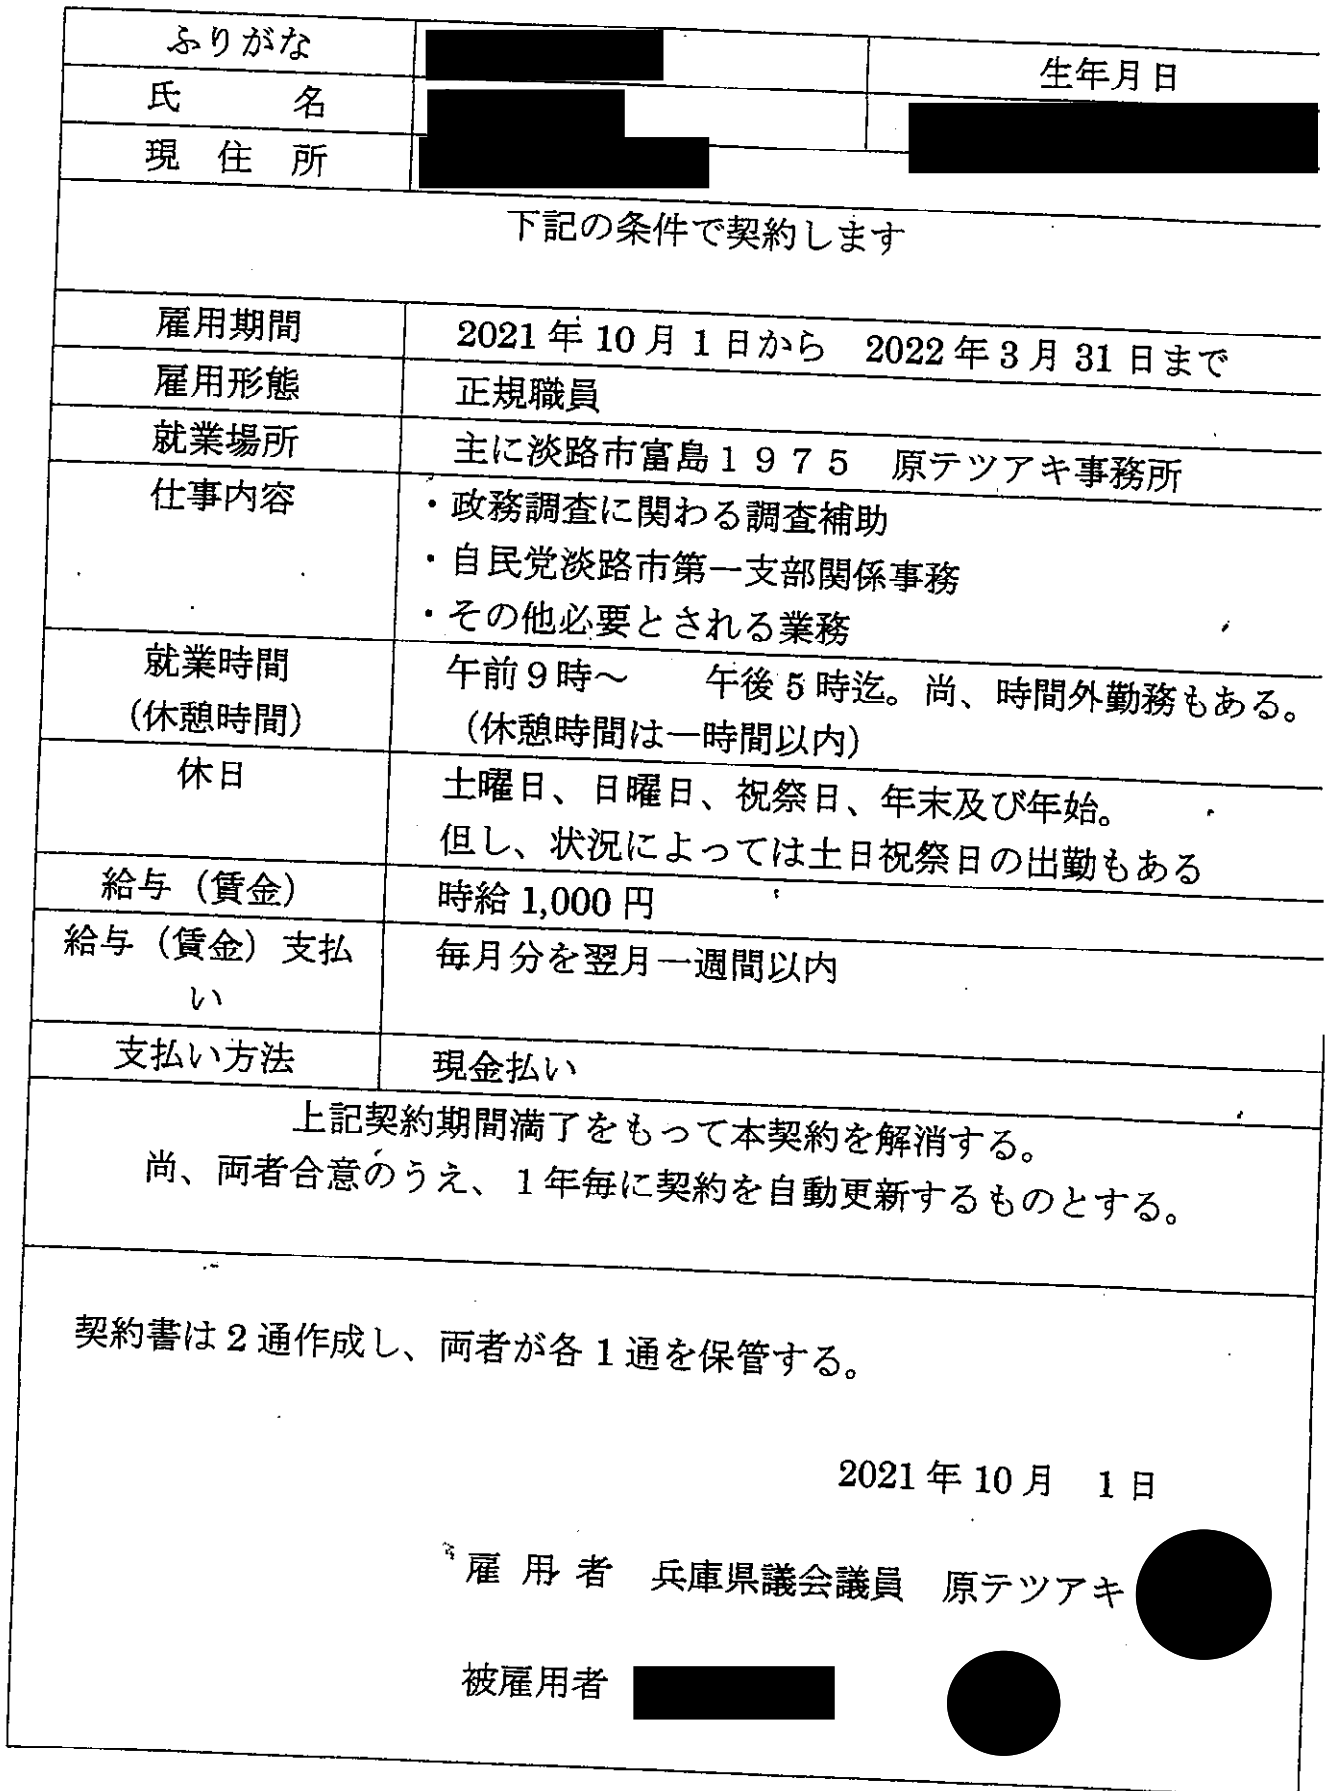 ふりがな
生年月日
氏　　　名
現　住　所
下記の条件で契約します
雇用期間
2021年10月1日から　2022年3月31日まで
雇用形態
正規職員
就業場所
主に淡路市富島１９７５　原テツアキ事務所
仕事内容
・政務調査に関わる調査補助
・自民党淡路市第一支部関係事務
・その他必要とされる業務
就業時間
（休憩時間）
午前9時～　　午後5時迄。尚、時間外勤務もある。
（休憩時間は一時間以内）
休日
土曜日、日曜日、祝祭日、年末及び年始。
但し、状況によっては土日祝祭日の出勤もある
給与（賃金）
時給1,000円
給与（賃金）支払
い
毎月分を翌月一週間以内
支払い方法
現金払い
上記契約期間満了をもって本契約を解消する。
尚、両者合意のうえ、1年毎に契約を自動更新するものとする。
契約書は2通作成し、両者が各1通を保管する。
2021年10月　1日
雇 用 者　兵庫県議会議員　原テツアキ
被雇用者